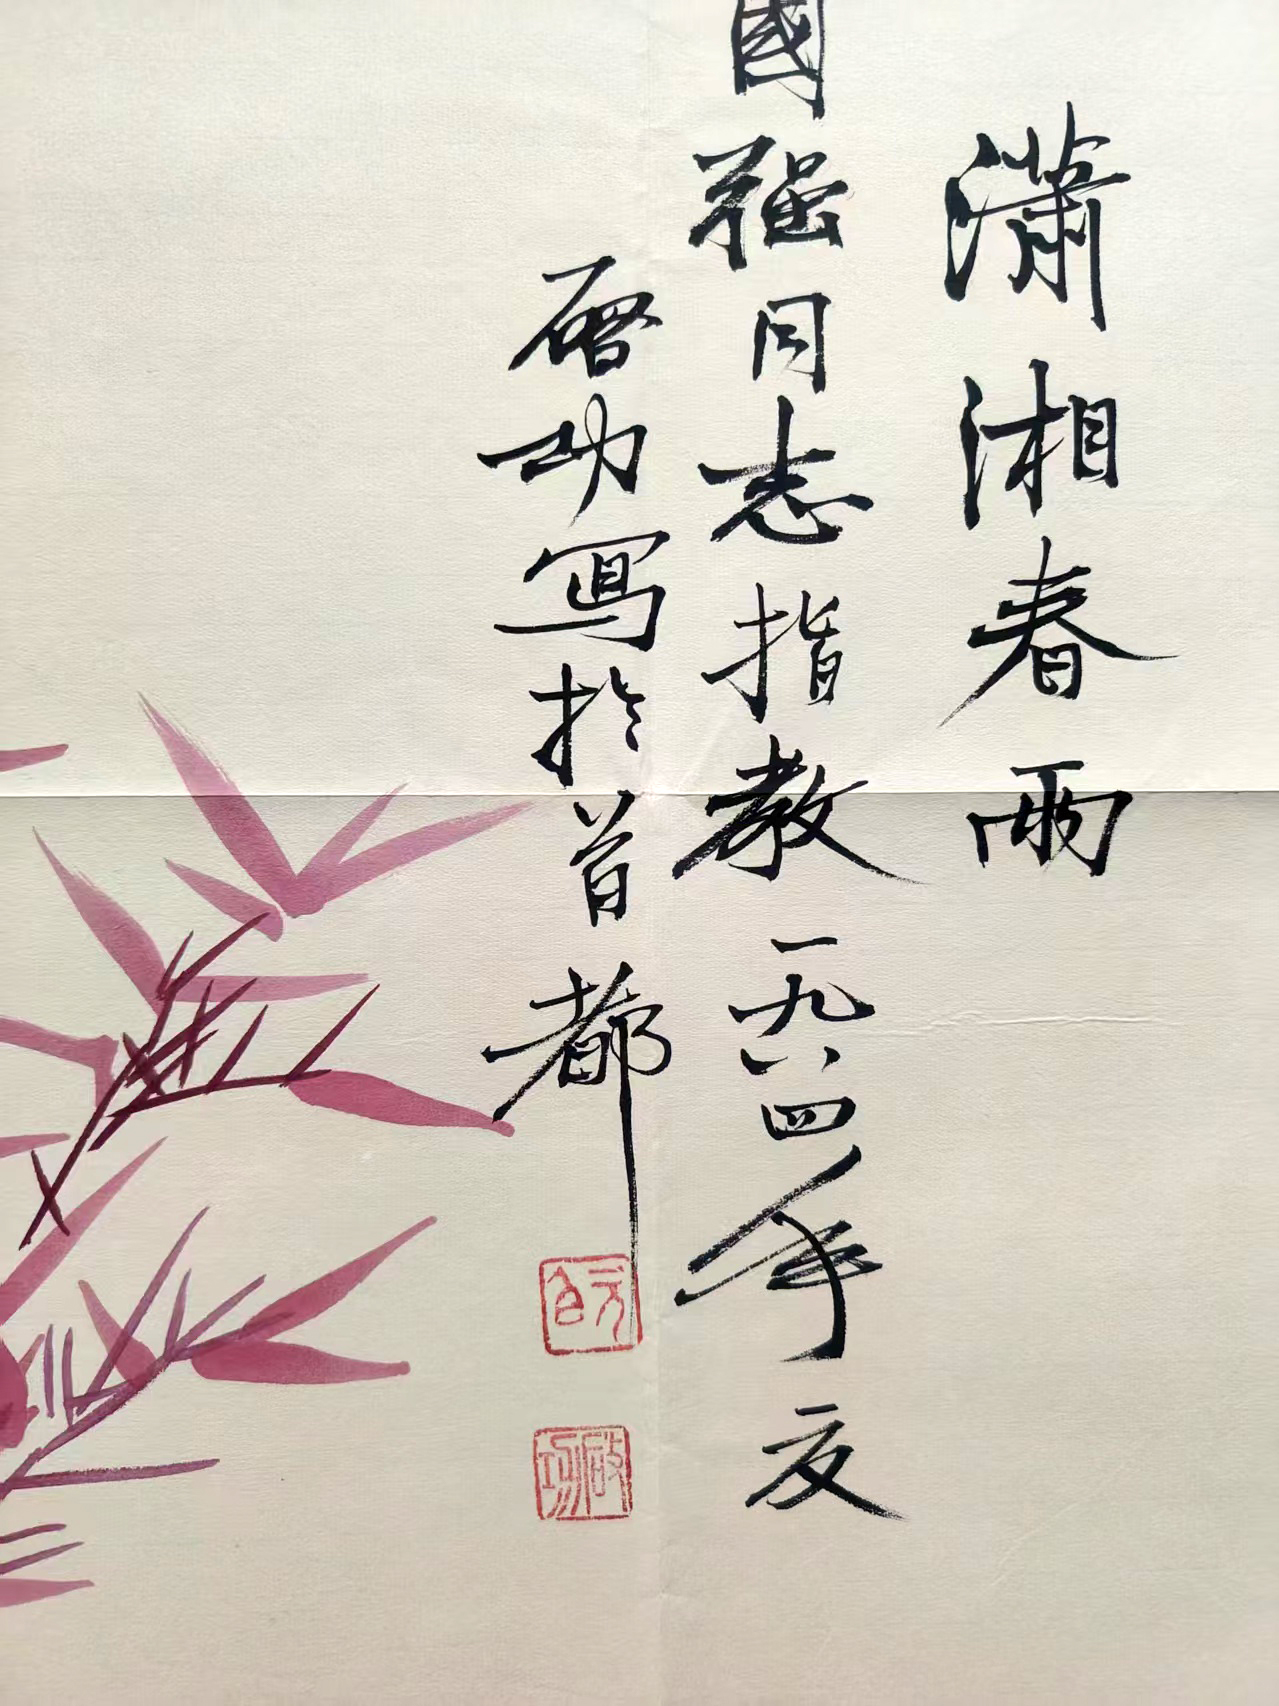 瀟湘春雨
國強同志指教一九八四年夏
啓功寫於首都
元白
啟功